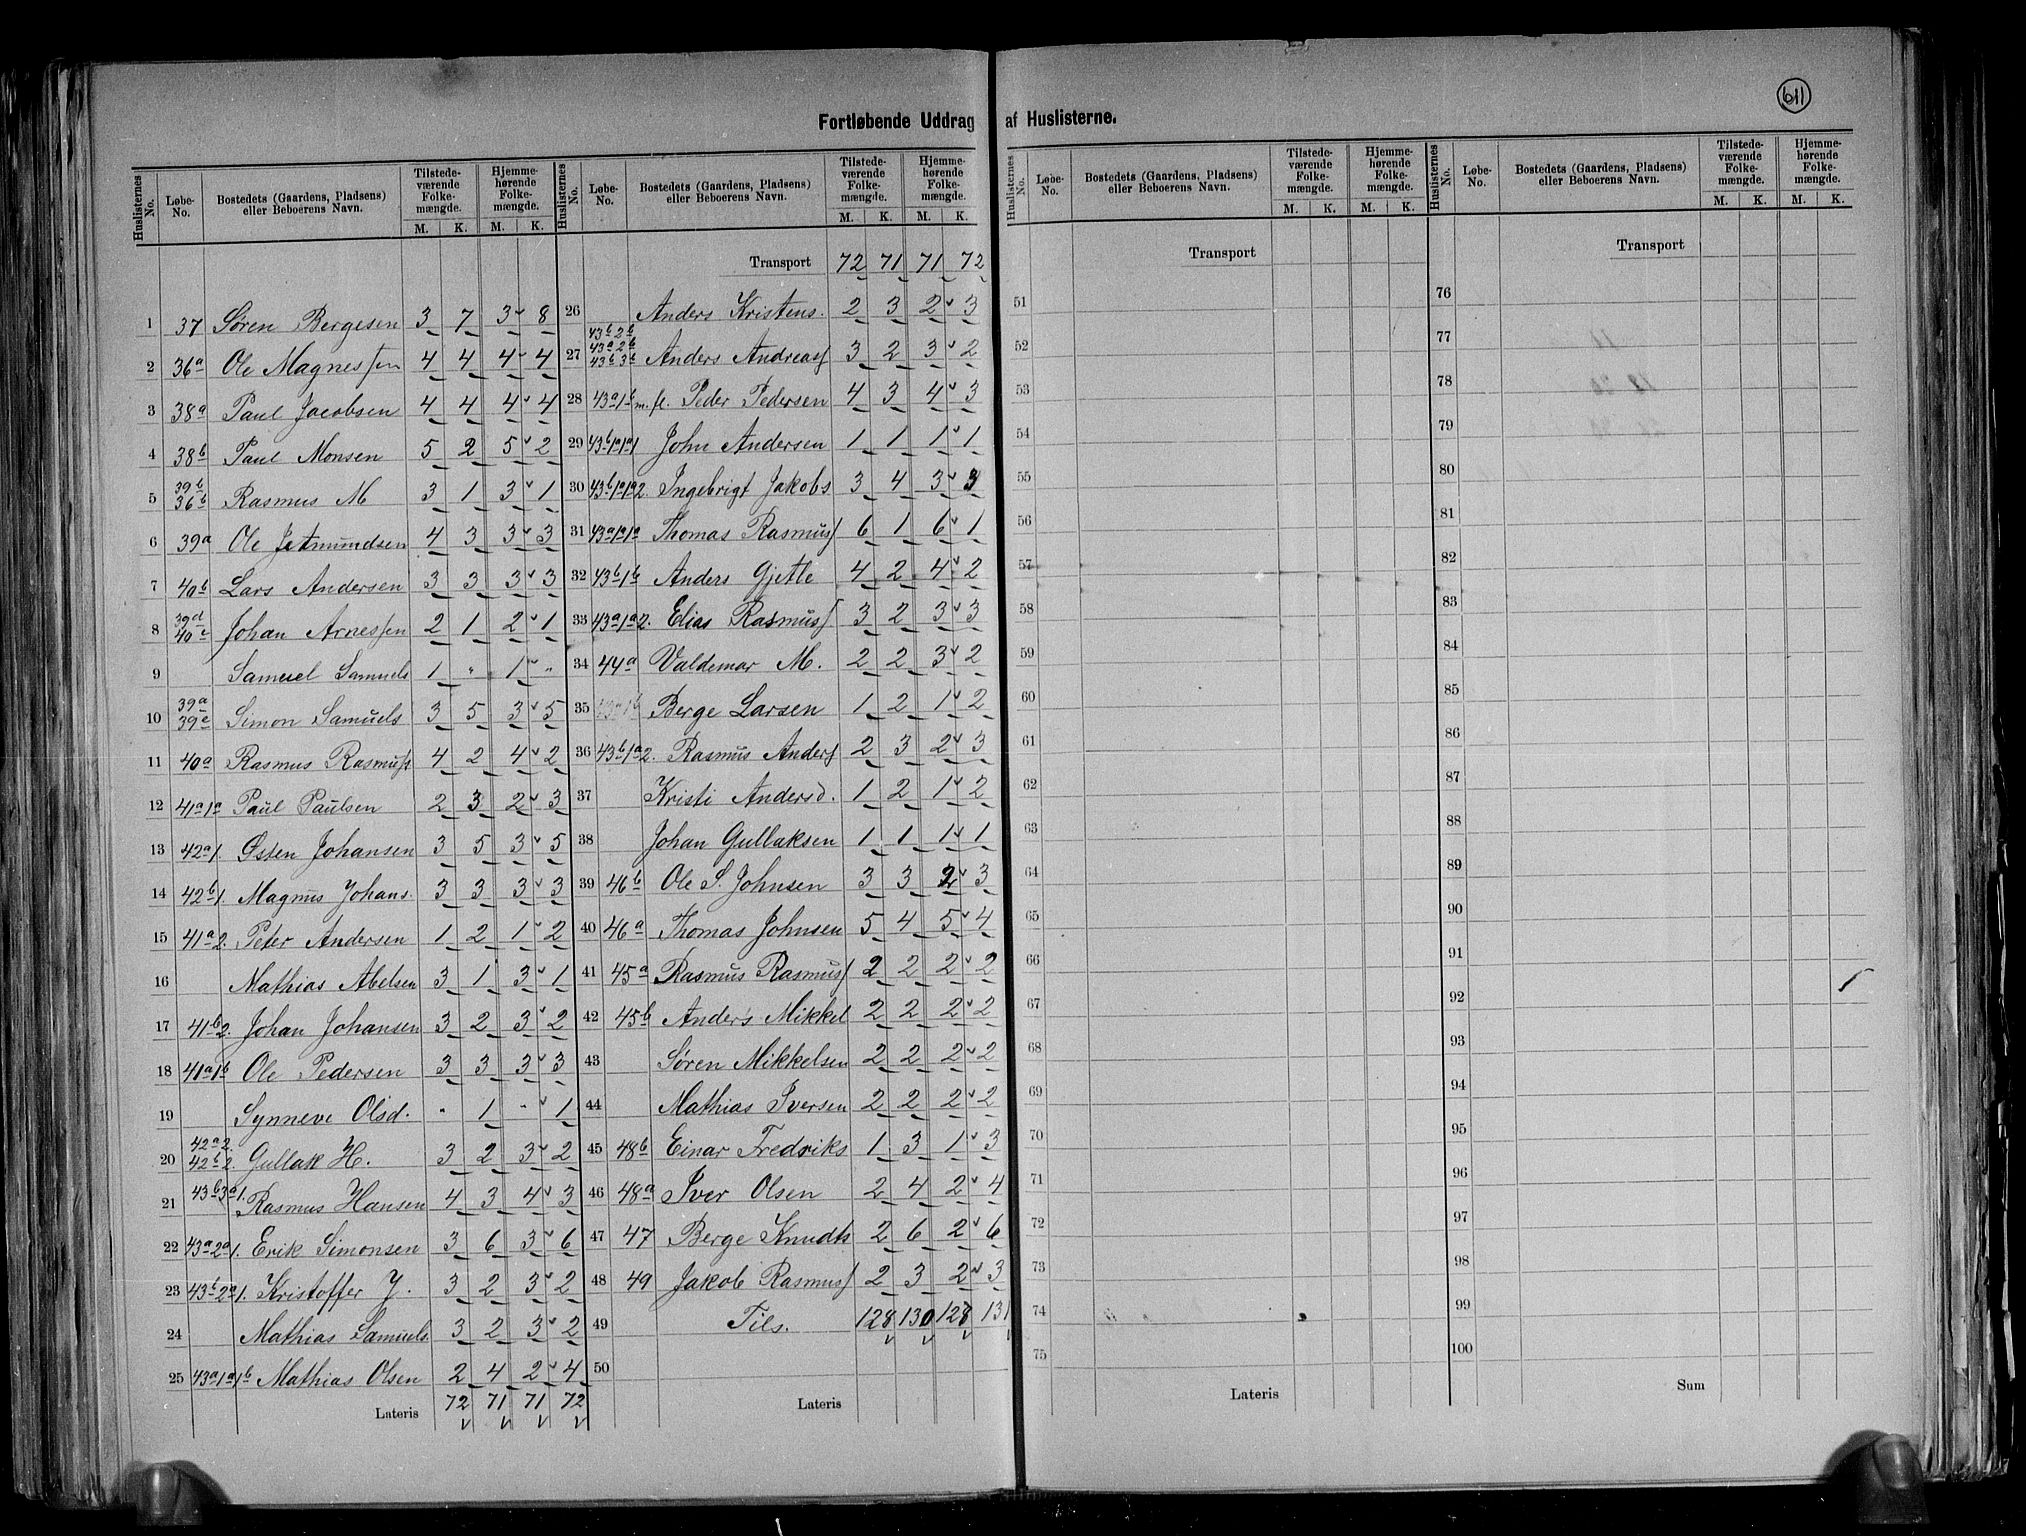 611
Fortløbende Uddrag af Huslisterne.
Huslisternes No. Løbe-No. Bostedets (Gaardens, Pladsens) eller Beboerens Navn. Tilstedeværende Folkemængde. M. K. Hjemmehørende Folkemængde. M. K.
1 37 Søren Bergesen 3 7 3 8
2 36a Ole Magnessen 4 4 4 4
3 38a Paul Jacobsen 4 4 4 4
4 38b Paul Monsen 5 2 5 2
5 39b 36b Rasmus M 3 1 3 1
6 39a Ole Jetmundsen 4 3 3 3
7 40b Lars Andersen 3 3 3 3
8 39d 40c Johan Arnessen 2 1 2 1
9 Samuel Samuels 1 " 1 "
10 39a 39c Simon Samuels 3 5 3 5
11 40a Rasmus Rasmuss 4 2 4 2
12 41a1a Paul Paulsen 2 3 2 3
13 42a1. Østen Johansen 3 5 3 5
14 42b1. Magnus Johans. 3 3 3 3
15 41a2. Peter Andersen 1 2 1 2
16 Mathias Abelsen 3 1 3 1
17 41b2. Johan Johansen 3 2 3 2
18 41a1b Ole Pedersen 3 3 3 3
19 Synneve Olsd. " 1 " 1
20 42a2. 42b2. Gullak H. 3 2 3 2
21 43b3a1. Rasmus Hansen 4 3 4 3
22 43a2a1. Erik Simonsen 3 6 3 6
23 43b2a1. Kristoffer J. 3 2 3 2
24 Mathias Samuels. 3 2 3 2
25 43a1a1b Mathias Olsen 2 4 2 4
Lateris 72 71 71 72
Huslisternes No. Løbe-No. Bostedets (Gaardens, Pladsens) eller Beboerens Navn. Tilstedeværende Folkemængde. M. K. Hjemmehørende Folkemængde. M. K.
Transport 72 71 71 72
26 Anders Kristens. 2 3 2 3
27 43b2b 43a2b 43b3b Anders Andreass 3 2 3 2
28 43a1b m. fl. Peder Pedersen 4 3 4 3
29 43b1a1a1 John Andersen 1 1 1 1
30 43b1a1a2. Ingebrigt Jakobs 3 4 3 3
31 43a1a1a Thomas Rasmuss 6 1 6 1
32 43b1b Anders Gjetle 4 2 4 2
33 43a1a2. Elias Rasmuss 3 2 3 3
34 44a Valdemar M. 2 2 3 2
35 Berge Larsen 1 2 1 2
36 43b1a2. Rasmus Anders 2 3 2 3
37 Kristi Andersd. 1 2 1 2
38 Johan Gullaksen 1 1 1 1
39 46b Ole S. Johnsen 3 3 2 3
40 46a Thomas Johnsen 5 4 5 4
41 45a Rasmus Rasmuss 2 2 2 2
42 45b Anders Mikkel 2 2 2 2
43 Søren Mikkelsen 2 2 2 2
44 Mathias Iversen 2 2 2 2
45 48b Einar Fredriks 1 3 1 3
46 48a Iver Olsen 2 4 2 4
47 47 Berge Knudts 2 6 2 6
48 49 Jakob Rasmuss 2 3 2 3
49 Tils. 128 130 128 131
50
Lateris
Huslisternes No. Løbe-No. Bostedets (Gaardens, Pladsens) eller Beboerens Navn. Tilstedeværende Folkemængde. M. K. Hjemmehørende Folkemængde. M. K.
Transport
51
52
53
54
55
56
57
58
59
60
61
62
63
64
65
66
67
68
69
70
71
72
73
74
75
Lateris
Huslisternes No. Løbe-No. Bostedets (Gaardens, Pladsens) eller Beboerens Navn. Tilstedeværende Folkemængde. M. K. Hjemmehørende Folkemængde. M. K.
Transport
76
77
78
79
80
81
82
83
84
85
86
87
88
89
90
91
92
93
94
95
96
97
98
99
100
Sum